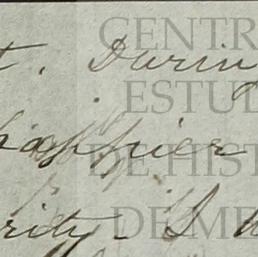 t. Durin
happier
rity. I
CENTR
ESTUD
DE HIST
DE ME